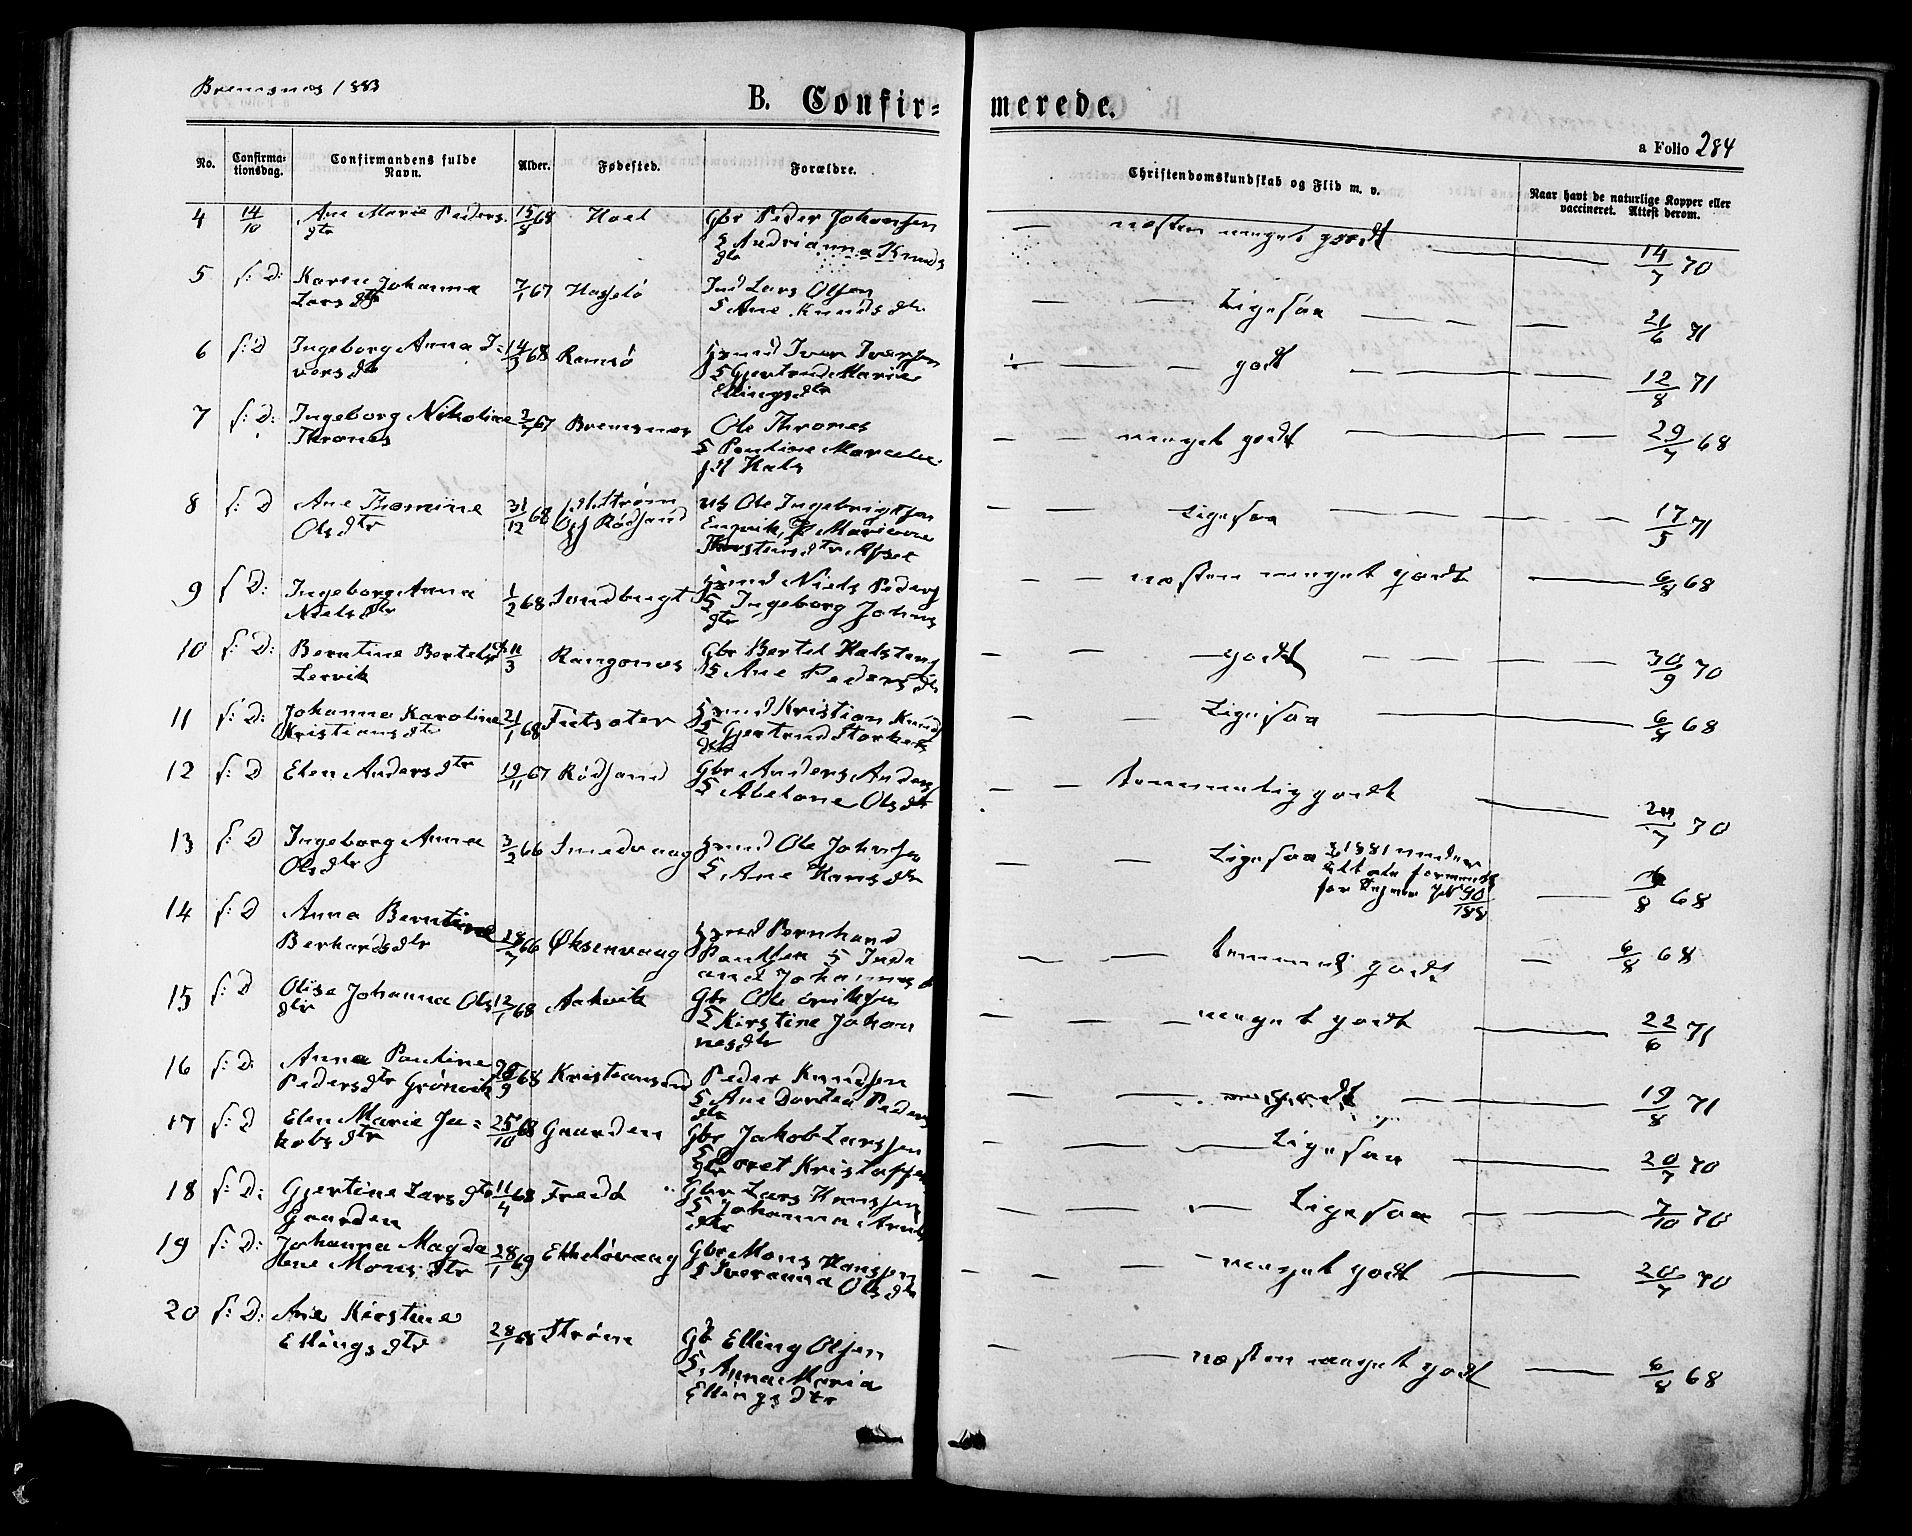 Bremsnes 1883
B. Confir-
merede.
a Folio 284
No.
Confirma-
tionsdag.
Confirmandens fulde
Navn.
Alder.
Fødested.
Forældre.
Christendomskundskab og Flid m. v.
Naar havt de naturlige Kopper eller
vaccineret. Attest derom.
4 14/10 Ane Marie Peders 15/8 68 Hoel Gbr Peder Johansen
dtr & Andrianna Knuds
dtr
næsten meget godt 14/7 70
5 s: D: Karen Johanna 7/1 67 Hasselö Ind Lars Olsen
Larsdtr & Ane Knudsdtr
Ligesaa 21/6 71
6 s: D Ingeborg Anna I- 14/3 68 Ramsö Hmd Iver Iversen
versdtr & Gjertrud Marie
Ellingsdtr
godt 12/8 71
7 s: D: Ingeborg Nikoline 2/7 67 Bremsnes Ole Thrones
Thrones & Pauline Marcelie
Hals
meget godt 29/7 68
8 s: D Ane Thomine 31/12 68 Ström Ole Ingebrigtsen
Olsdtr Rödsand Engvik,
Thorsteinsdtr
Ligesaa 17/5 71
9 s D: Ingeborg Anna 1/2 68 Sandbugt Hmd Niels Peders
Nielsdtr & Ingeborg Johns
dtr
næsten meget godt 6/8 68
10 s: D: Berntine Bertels 11/3 Rangønes Gbr Bertel Halstens
Lervik & Ane Pedersdtr
godt 30/9 70
11 s: D: Johanna Karoline 21/1 68 Futsæter Hmd Kristian Knuds
Kristiansdtr & Gjertrud Storkers
dtr
Ligesaa 6/8 68
12 s: D Elen Andersdtr 19/11 67 Rödsand Gbr Anders Anders
& Abelone Olsdtr
temmelig godt 20/7 70
13 s: D Ingeborg Anna 3/2 66 Smedvaag Hmd Ole Johnsen
Olsdtr & Ane Hansdtr
Ligesaa 6/8 68
14 s: D Anna Berntine
Berhardsdtr 28/7 66 Öksenvaag Hmd Bernhard
Paulsen &
Johannesd
temmel godt 6/8 68
15 s: D Olise Johanna Ols 12/1 68 Aakvik Gbr Ole
dtr & Kirstine Johan
nesdtr
meget godt 22/6 71
16 s: D: Anna Pauline
Pedersdtr Grönvik 68 Kristiansund Peder Knudsen
& Ane Dortea Peders
dtr
godt 19/8 71
17 s: D Elen Marie Ja- 25/10 68 Gaarden Gbr Jakob Larssen
kobsdtr & Doret Kristoffers
dtr
Ligesaa 20/7 70
18 s: D: Gjertine Larsdtr 11/4 68 Fredö Gbr Lars Hanssen
Gaarden & Johanna Arnts
dtr
Ligesaa 7/10 70
19 s: D: Johanna Magda 28/1 69 Ekkelövaag Gbr Mons Hansen
lene Monsdtr & Iveranna Olsdtr
meget godt 20/7 70
20 s: D: Ane Kirstine
Ellingsdtr 28/1 68 Ström Gbr Elling Olsen
& Anna Maria
Ellingsdtr
næsten meget godt 6/8 68